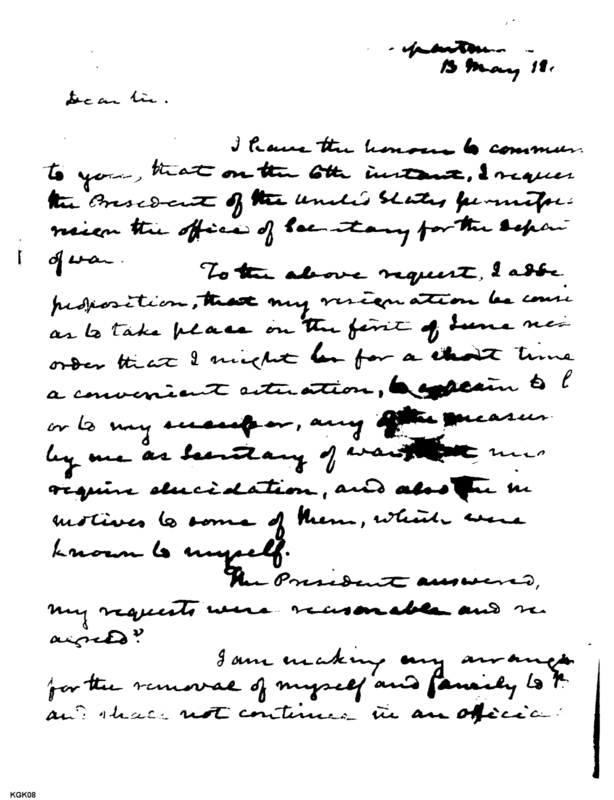 13 May 18
Dear Sir.
I have the honour to commun
to you, that on the 6th instant, I reques
the President of the United States permiss
resign the office of Secretary for the Depar
of war.
To the above request, I adde
proposition, that my resignation be consi
as to take place on the first of June nex
order that I might be for a short time
a convenient situation, to explain to
or to my successor, any of the measur
by me as Secretary of war
require elucidation, and also the in
motives to some of them, which were
known to myself.
The President answered,
my requests were reasonable and re
agreed"
I am making my arrange
for the removal of myself and family to
and shall not continue in an officia
KGK08